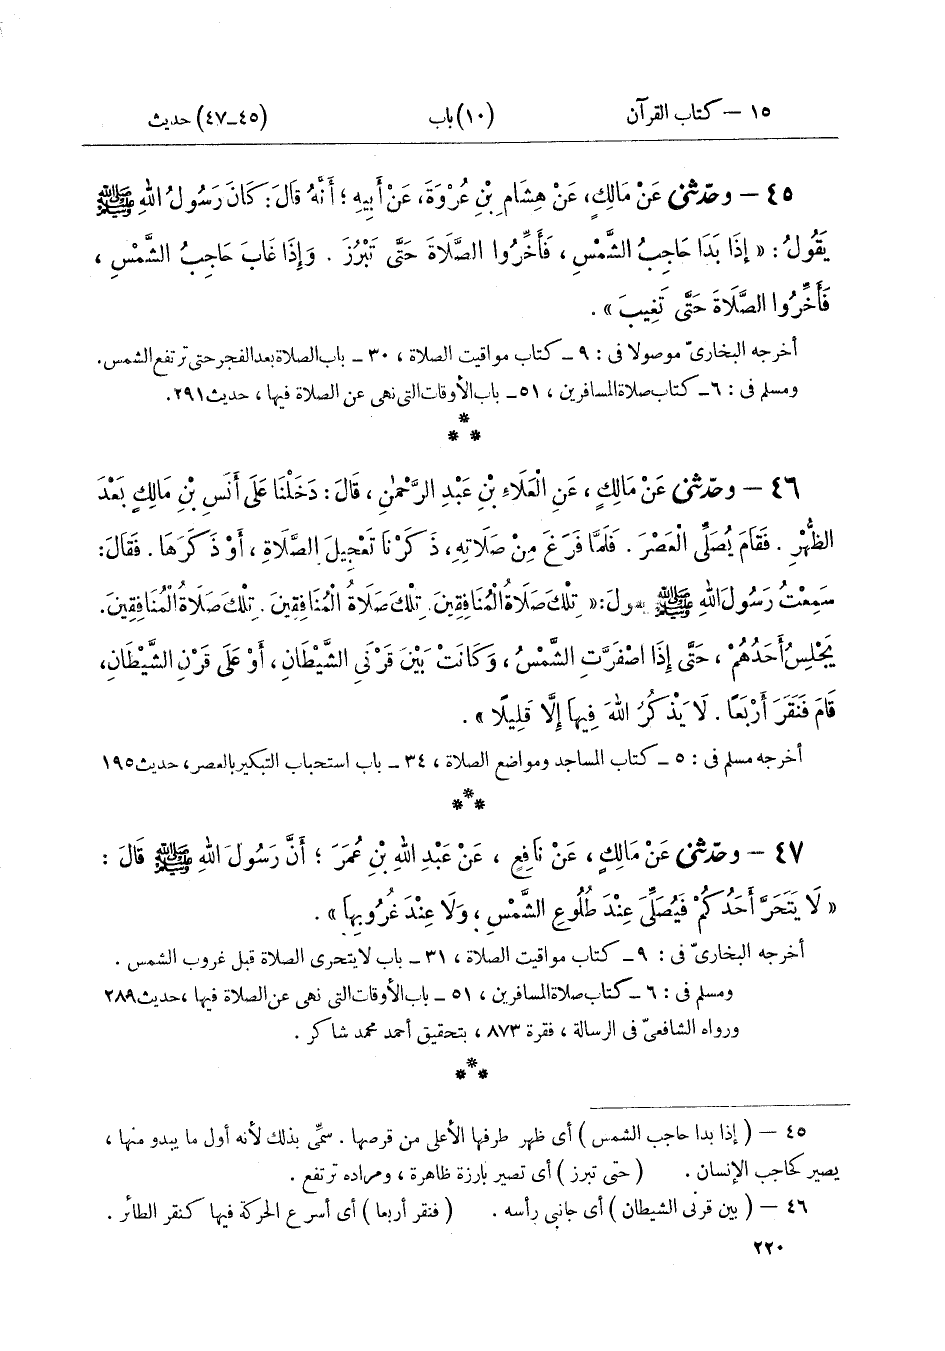 ١٥ – كتاب القرآن (١٠) باب (٤٥-٤٧) حديث
٤٥ – وحدّثنى عَنْ مَالِكٍ، عَنْ هِشَامِ بْنِ عُرْوَةَ، عَنْ أَبِيهِ ؛ أَنَّهُ قَالَ: كَانَ رَسُولُ اللهِ ﷺ
يَقُولُ: « إِذَا بَدَا حَاجِبُ الشَّمْسِ ، فَأَخِّرُوا الصَّلَاةَ حَتَّى تَبْرُزَ . وَإِذَا غَابَ حَاجِبُ الشَّمْسِ ،
فَأَخِّرُوا الصَّلَاةَ حَتَّى تَغِيبَ » .
أخرجه البخارىّ موصولا فى : ٩ ـ كتاب مواقيت الصلاة ، ٣٠ ـ باب الصلاة بعد الفجر حتى ترتفع الشمس.
ومسلم فى : ٦ ـ كتاب صلاة المسافرين ، ٥١ ـ باب الأوقات التى نهى عن الصلاة فيها ، حديث ٢٩١.
*
* *
٤٦ – وحدّثنى عَنْ مَالِكٍ ، عَنِ الْعَلَاءِ بْنِ عَبْدِ الرَّحْمٰنِ ، قَالَ : دَخَلْنَا عَلَى أَنَسِ بْنِ مَالِكٍ بَعْدَ
الظُّهْرِ . فَقَامَ يُصَلِّى الْعَصْرَ . فَلَمَّا فَرَغَ مِنْ صَلَاتِهِ، ذَكَرْنَا تَعْجِيلَ الصَّلَاةِ ، أَوْ ذَكَرَهَا . فَقَالَ :
سَمِعْتُ رَسُولَ اللهِ ﷺ يقولُ: « تِلْكَ صَلَاةُ الْمُنَافِقِينَ. تِلْكَ صَلَاةُ الْمُنَافِقِينَ . تِلْكَ صَلَاةُ الْمُنَافِقِينَ.
يَجْلِسُ أَحَدُهُمْ ، حَتَّى إِذَا اصْفَرَّتِ الشَّمْسُ ، وَكَانَتْ بَيْنَ قَرْنَىِ الشَّيْطَانِ ، أَوْ عَلَى قَرْنِ الشَّيْطَانِ،
قَامَ فَنَقَرَ أَرْبَعًا . لَا يَذْكُرُ اللهَ فِيهَا إِلَّا قَلِيلًا » .
أخرجه مسلم فى : ٥ ـ كتاب المساجد ومواضع الصلاة ، ٣٤ ـ باب استحباب التبكير بالعصر، حديث ١٩٥
*
* *
٤٧ – وحدّثنى عَنْ مَالِكٍ ، عَنْ نَافِعٍ ، عَنْ عَبْدِ اللهِ بْنِ عُمَرَ ؛ أَنَّ رَسُولَ اللهِ ﷺ قَالَ :
« لَا يَتَحَرَّ أَحَدُكُمْ فَيُصَلِّىَ عِنْدَ طُلُوعِ الشَّمْسِ ، وَلَا عِنْدَ غُرُوبِهَا » .
أخرجه البخارىّ فى : ٩ ـ كتاب مواقيت الصلاة ، ٣١ ـ باب لا يتحرى الصلاة قبل غروب الشمس .
ومسلم فى : ٦ ـ كتاب صلاة المسافرين ، ٥١ ـ باب الأوقات التى نهى عن الصلاة فيها ، حديث ٢٨٩
ورواه الشافعىّ فى الرسالة ، فقرة ٨٧٣ ، بتحقيق أحمد محمد شاكر .
*
* *
٤٥ – ( إذا بدا حاجب الشمس ) أى ظهر طرفها الأعلى من قرصها . سمّى بذلك لأنه أول ما يبدو منها ،
يصير كحاجب الإنسان . ( حتى تبرز ) أى تصير بارزة ظاهرة ، ومراده ترتفع .
٤٦ – ( بين قرنى الشيطان ) أى جانبى رأسه . ( فنقر أربعا ) أى أسرع الحركة فيها كنقر الطائر .
٢٢٠